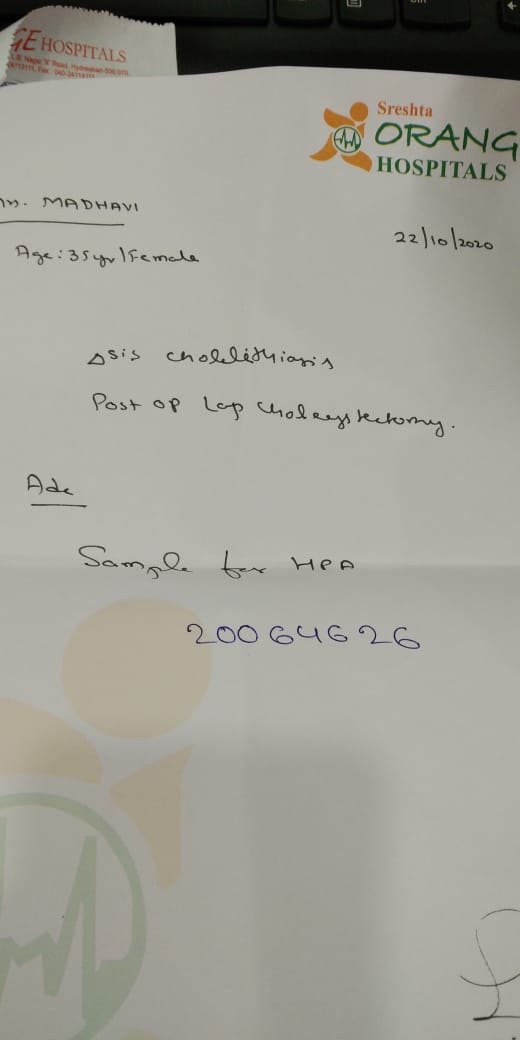 GE HOSPITALS
Sreshta
ORANG
HOSPITALS
MADHAVI
22/10/2020
Age: 35yr/Female
Δsis cholelithiasis
Post op Lap cholecystectomy.
Adv
Sample for HPA
20064626